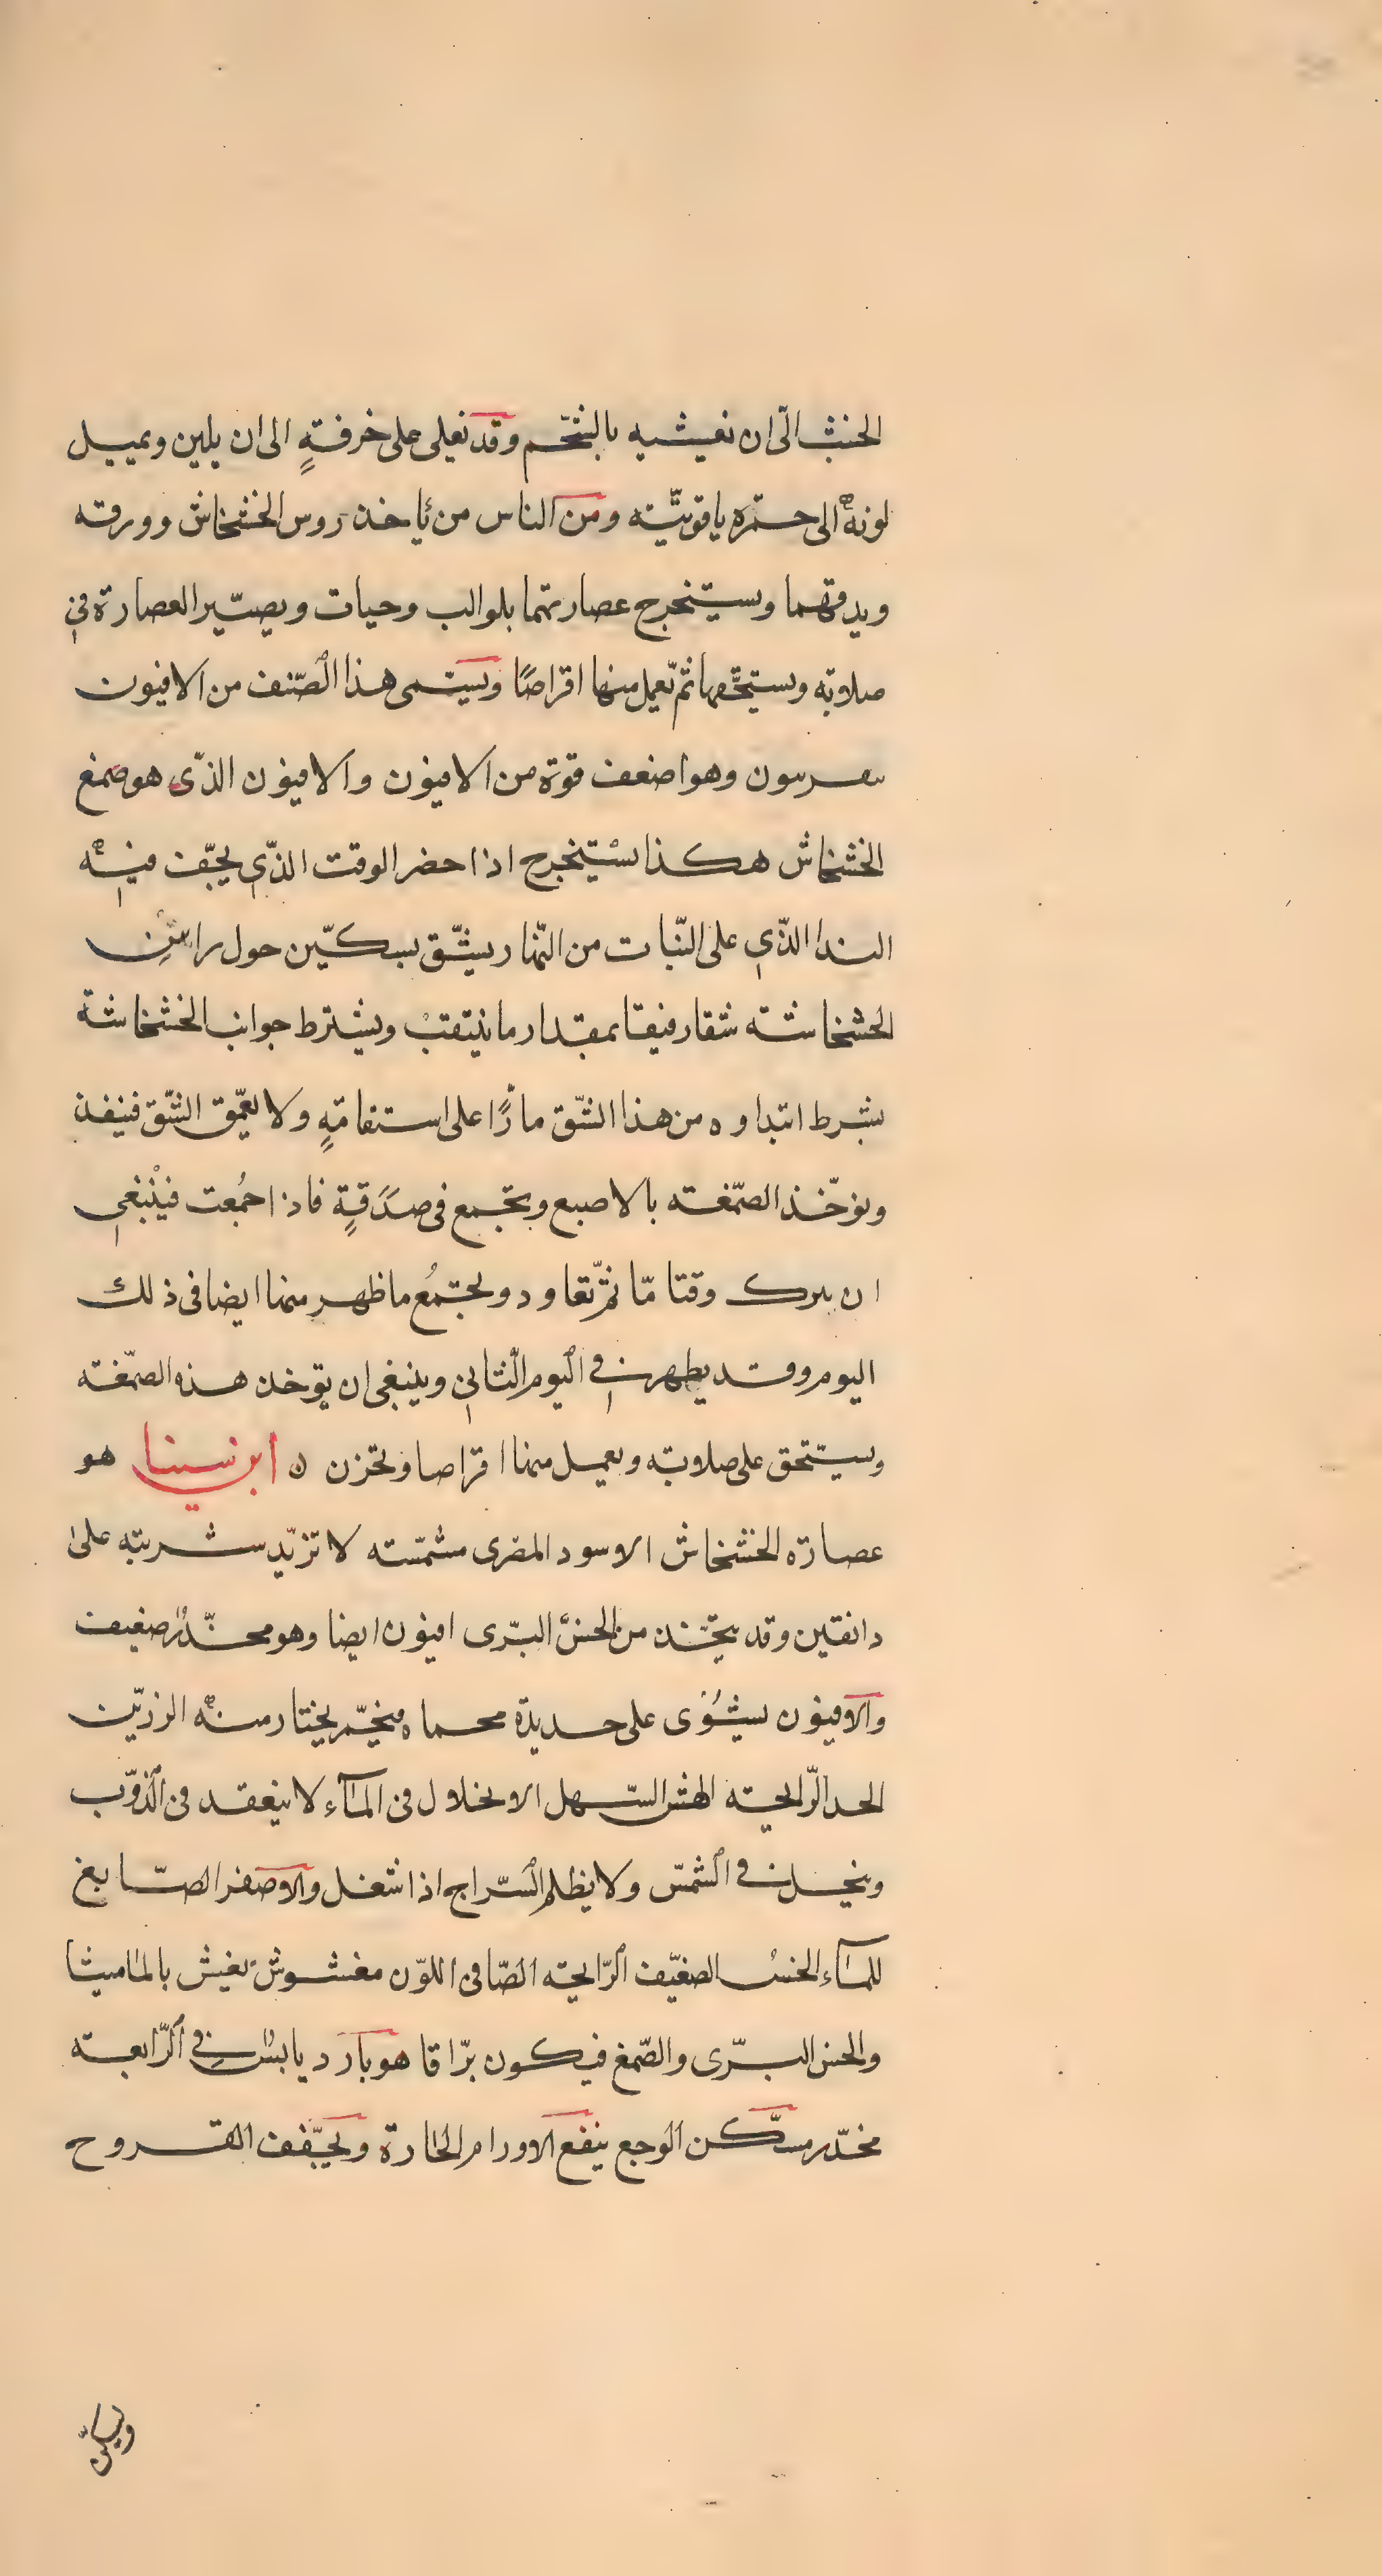 الخنث الّى ان نغيشيه بالشحّم وقد نعلى على خرفةٍ الى ان يلين ويميل
لونه الى حمّره ياقوتيّته ومن الناس من ئاخذ روس الخشخاش وورقه
ويدقهما ويستيخرج عصارتهما بلوالب وحيات ويصيّر العصارة فى
صلابته ويستيحّقها ثم تعمّل منها اقراصًا ويسّمى هذا الصّنف من الافيون
معرسون وهو اضعف قوة من الافيون والافيون الذّى هو صمغ
الخشخاش هكذا يستيخرج اذا حضر الوقت الذّى يجّف فيه
الندا الذّى على النّبات من النّهار يشّق بسكّين حول راس
الخشخاشته شقا رفيقا بمقدار ما نيتقب ويشترط جوانب الخشخاشة
بشرط ابتداوه من هذا الشّق مارًا على استقامتهٍ ولا يعمّق الشّق فينفذ
ويوخّذ الصمّغته بالاصبع ويجمع فى صدَقةٍ فاذا جُمعت فينبغى
ان يترك وقتا مّا ثم ّتعاود ويجتمُع ما ظهر منها ايضا فى ذلك
اليوم وقد يظهر فى اليوم الثّانى وينبغى ان يوخذ هذه الصمّغته
ويستّحق على صلابته ويعمل منها اقراصا ويخزن ن ابن سينا هو
عصارة الخشخاش الاسود المصرى مشمّسته لا تزيّد شربته على
دانقين وقد يتخّذ من الخسّ البّرى افيون ايضا وهو مخدّرٌ ضعيف
والافيون يشُوى على حديدة محماه فيخمّر يختار منه الرزيّن
الحد الرّايحته الهش السّهل الانحلال فى المآء لا ينعقد فى الذوّب
وينحل فى الشمسّ ولا يظلم السّراج اذا شعل والاصفر الصّابغ
للمآء الخشن الضعيّف الرّايحته الصّافى اللوّن مغشوش يغيش بالماميثا
والخس البّرى والصّمغ فيكون برّاقا هو بارد يابس فى الرّابعته
مخدّر مسّكن الوجع ينفع الاورام الحارة ويجفّف القروح
وليكن